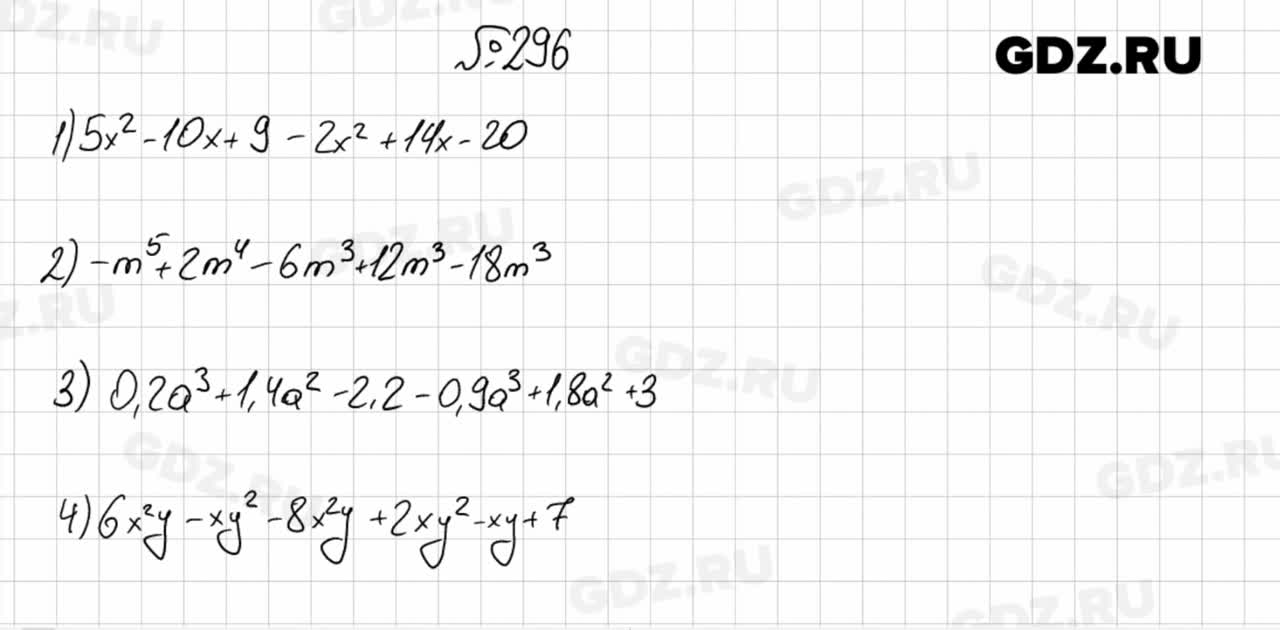 №296
GDZ.RU
1) 5x² - 10x + 9 - 2x² + 14x - 20
2) -m⁵ + 2m⁴ - 6m³ + 12m³ - 18m³
3) 0,2a³ + 1,4a² - 2,2 - 0,9a³ + 1,8a² + 3
4) 6x²y - xy² - 8x²y + 2xy² - xy + 7